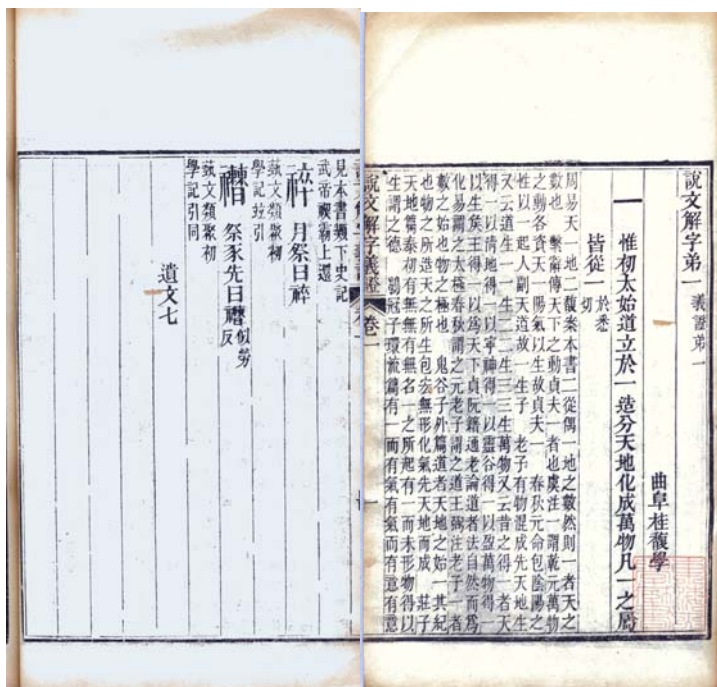 說文解字弟一 義證弟一
曲阜桂馥學
一 惟初太始道立於一造分天地化成萬物凡一之屬
皆從一 於悉切
周易天一地二馥案本書二從偶一地之數然則一者天之
數也 繫辭傳天下之動貞夫一者也虞注一謂乾元萬物
之動各資天一陽氣以生故貞夫一 春秋元命包陰陽之
性以一起人副天道故一生子 老子有物混成先天地生
又云道生一一生二二生三三生萬物又云昔之得一者天
得一以清地得一以寧神得一以靈谷得一以盈萬物得一
以生矦王得一以為天下貞阮籍通老論道者法自然而為
化易謂之太極春秋謂之元老子謂之道王弼注老子一者
數之始也物之極也 鬼谷子外篇道者天地之始一其紀
也物之所造天之所生包宏無形化氣先天地而成 莊子
天地篇泰初有無無有無名一之所起有一而未形物得以
生謂之德 鶡冠子環流篇有一而有氣有氣而有意有意
說文解字義證 卷一
見本書類下史記
武帝禊霸上還
祽 月祭曰祽
蓺文類聚初
學記竝引
䄚 祭豕先曰䄚 似勞反
蓺文類聚初
學記引同
遺文七